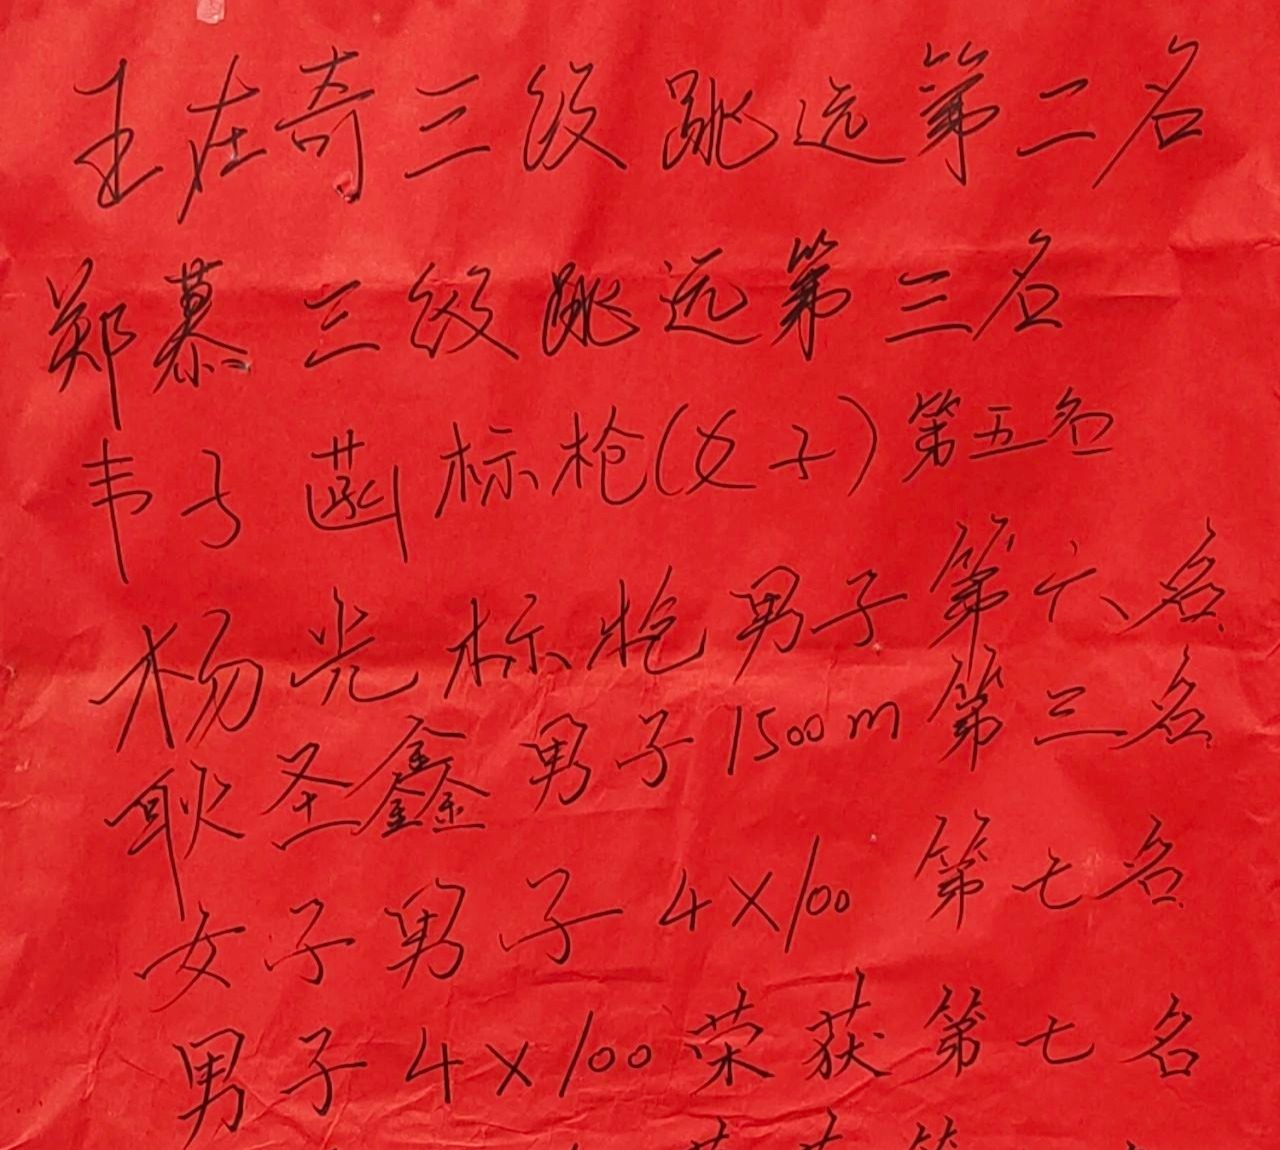 王在奇三级跳远第二名
郑慕三级跳远第三名
韦子菡标枪(女子)第五名
杨光标枪男子第六名
耿圣鑫男子1500m第三名
女子男子4×100第七名
男子4×100荣获第七名